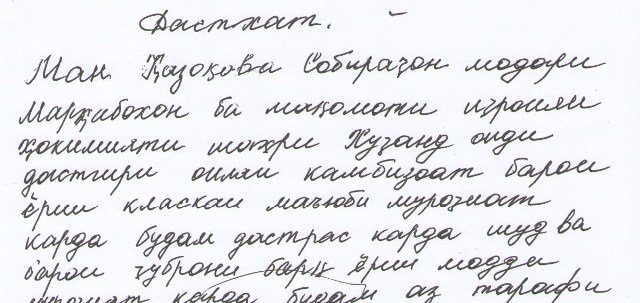 Дастхат.
Ман Қазоқова Собирахон модари
Марҳабохон ба мақомоти иҷроияи
ҳокимияти шаҳри Хуҷанд оиди
дастгири оилаи камбизоат барои
ёрии класкаи маъюби муроҷиат
карда будам дастрас карда шуд ва
барои ҷуброни барқ ёрии модди
карда будам аз тарафи